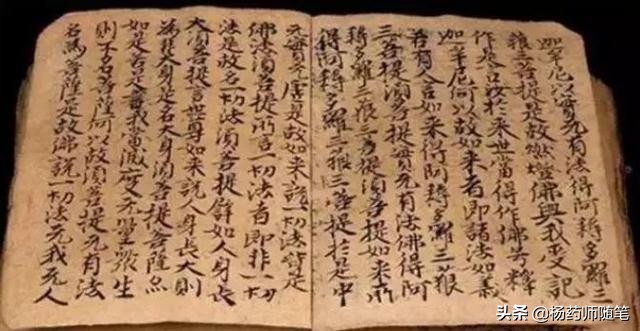 迦牟尼以實无有法得阿耨多羅三
藐三菩提是故燃燈佛與我受記
作是言汝於来世當得作佛号釋
迦牟尼何以故如来者即諸法如義
若有人言如来得阿耨多羅三藐
三菩提須菩提實无有法佛得阿
耨多羅三藐三菩提須菩提如来所
得阿耨多羅三藐三菩提於是中
无實无虛是故如来說一切法皆是
佛法須菩提所言一切法者即非一切
法是故名一切法須菩提譬如人身長
大須菩提言世尊如来說人身長大則
為非大身是名大身須菩提菩薩亦
如是若作是言我當滅度无量衆生
則不名菩薩何以故須菩提无有法
名為菩薩是故佛說一切法无我无人
头条 @杨药师随笔